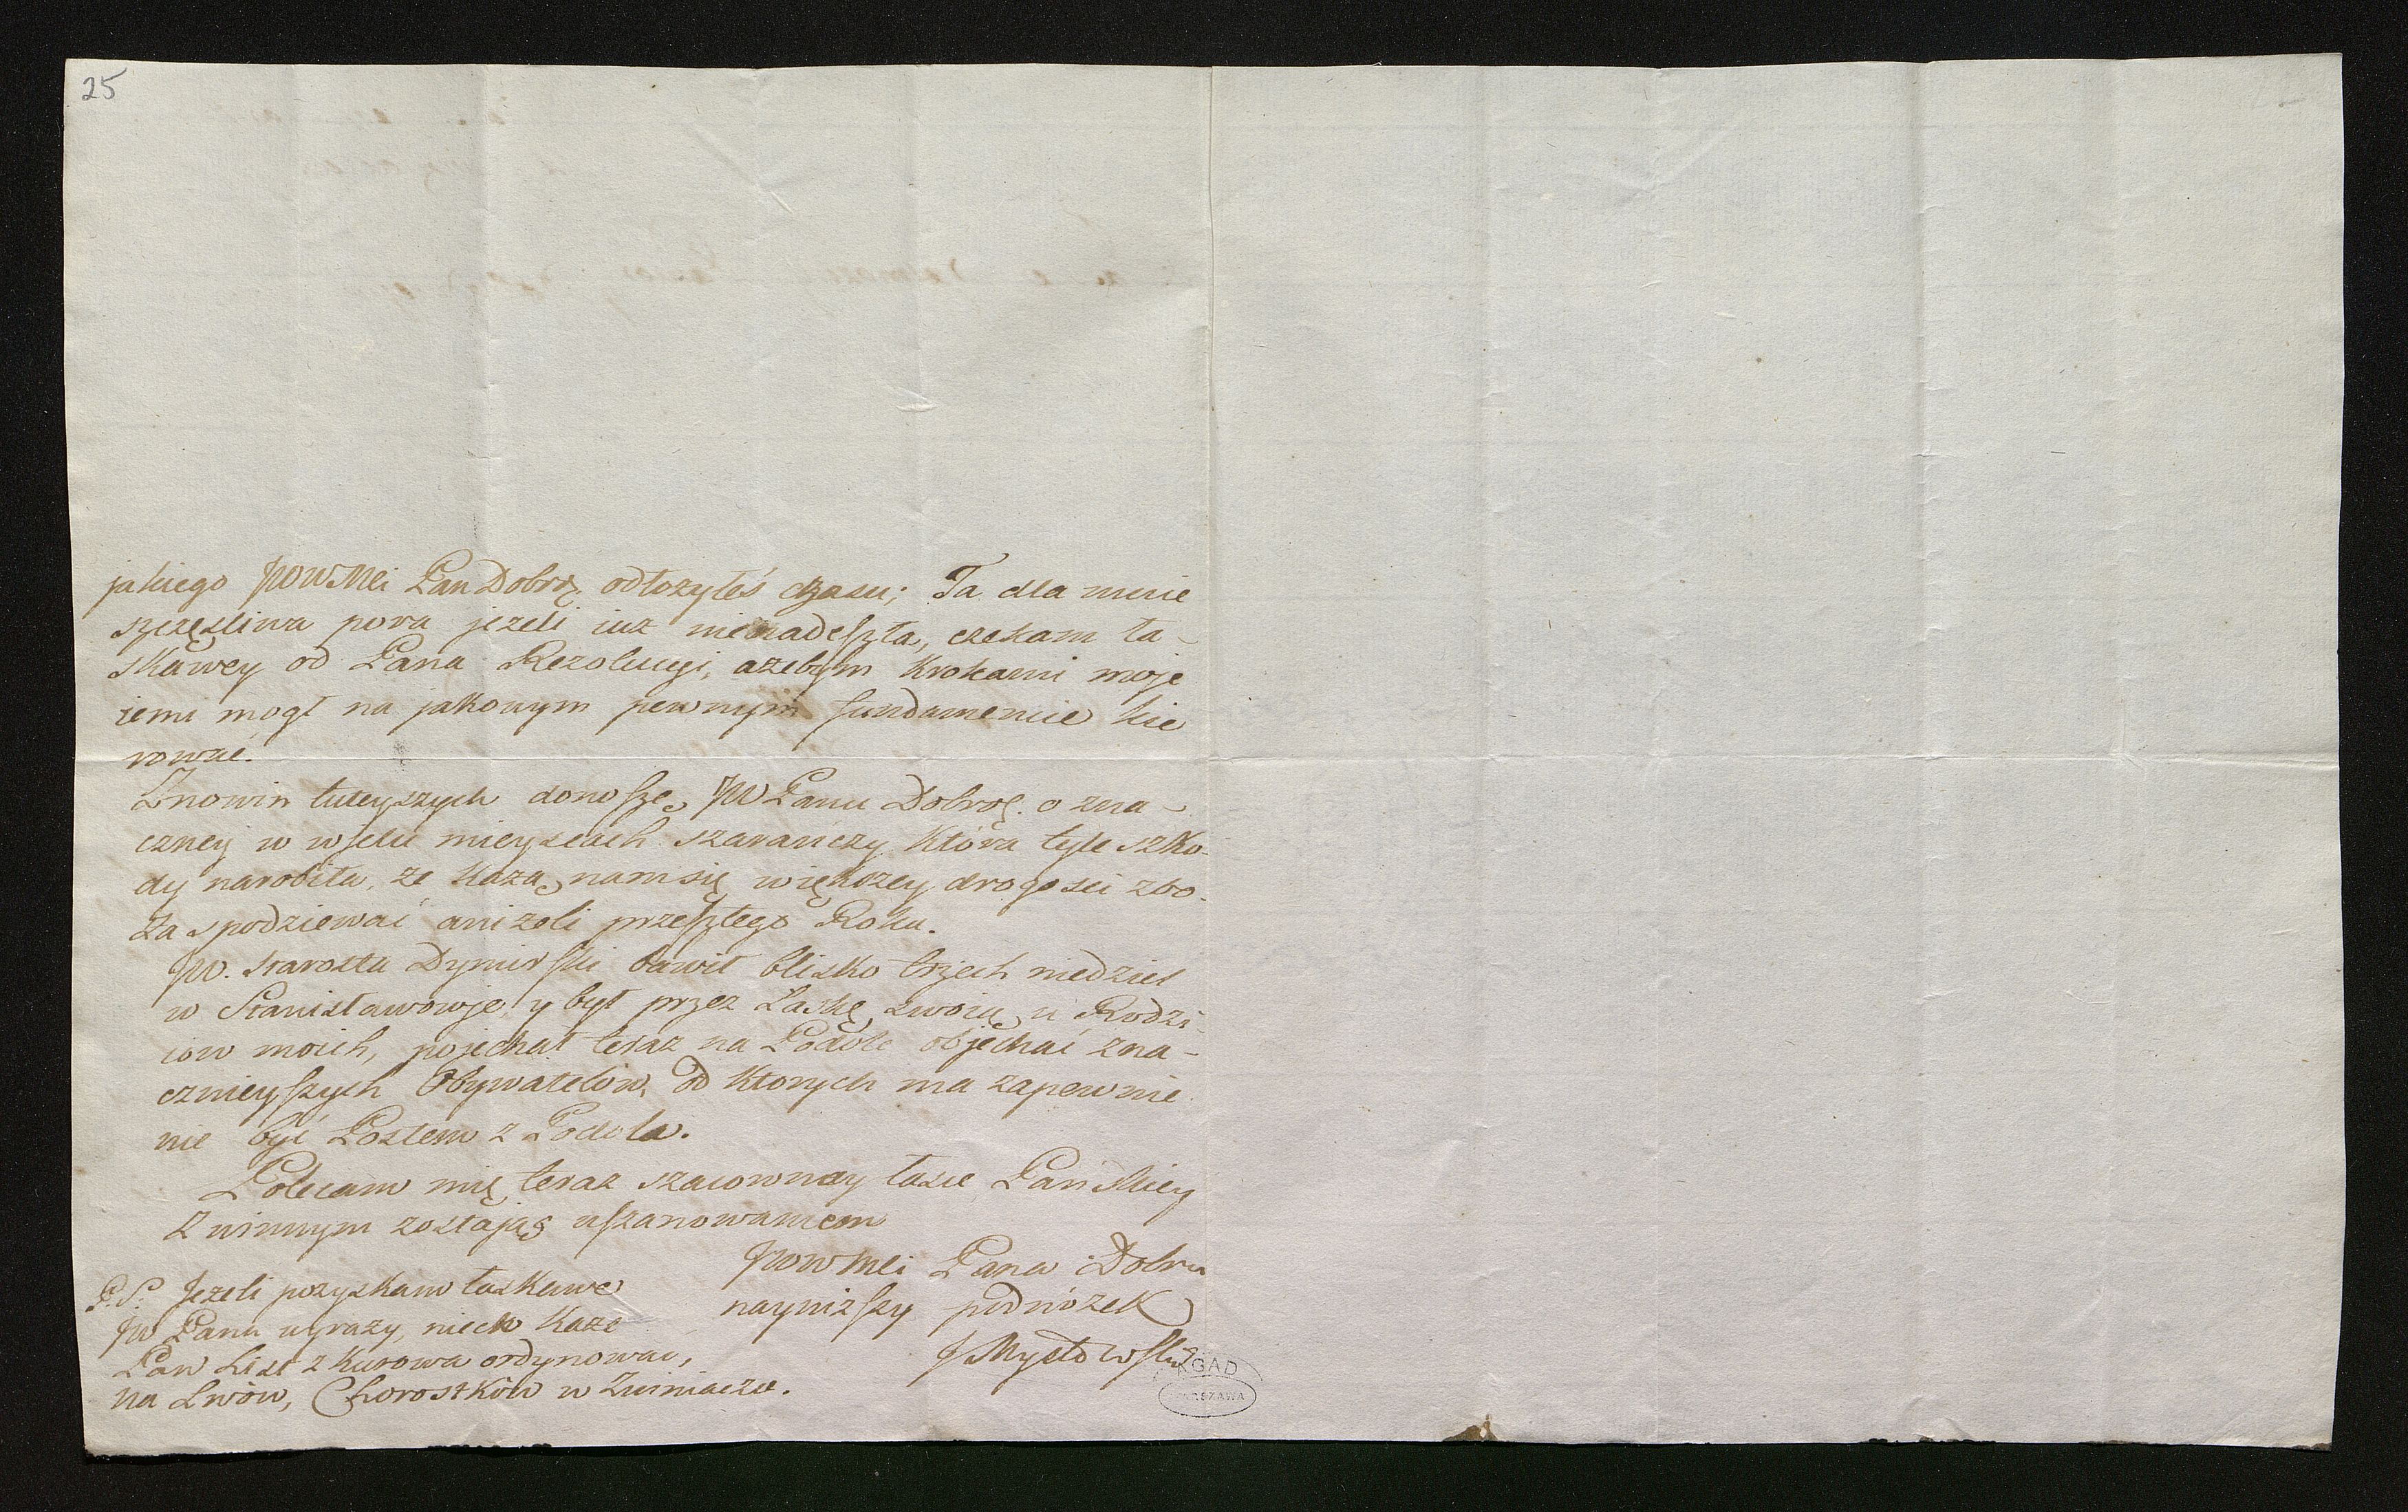 25
jakiego JWWMci Pan Dobrą. odłozyłeś czasu; Ta dla mnie
szczęsliwa pora jezeli iuz nienadeszła, czekam ła-
skawey od Pana Rezolucyi, azebym krokami moje
iemi mogł na jakowym pewnym fundamencie kie
rować.
Znowin tuteyszych donoszę JW Panu Dobrą. o zna-
czney w wielu mieyscach szarańczy która tyle szko-
dy narobiła, ze kazą nam się większey drogości zbo-
za spodziewać anizeli przeszłego Roku.
JW. Starosta Dymirski bawił blisko trzech niedziel
w Stanisławowje, y był przez Łaskę swoię u Rodzi-
cow moich, pojechał teraz na Podole objechać zna-
cznieyszych Obywatelow, od ktorych ma zapewnie
nie być Posłem z Podola.
Polecam mię teraz szacowney łasce Pańskiey
Z winnym zostając uszanowaniem
JWWMci Pana Dobru
nayniższy podnóżek
J Mysłowski
P.S. Jezeli pozyskam łaskawe
JW Pana wyrazy, niech kaze
Pan List z Kurowa ordynować,
na Lwów, Chorostków w Zwiniacze.
AGAD
WARSZAWA